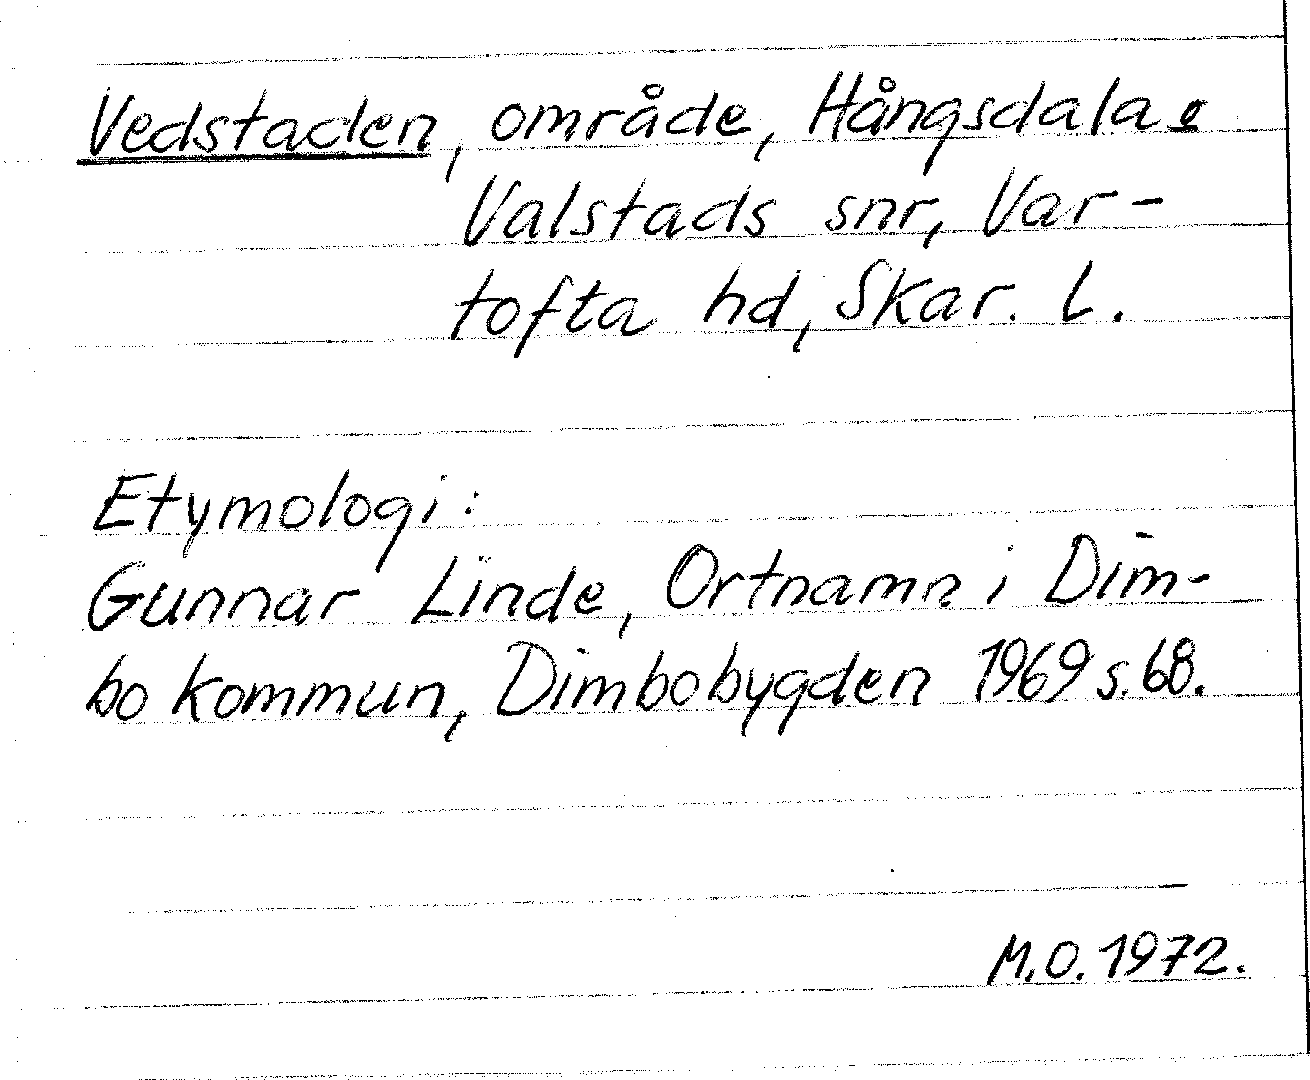 Vedstaden, område, Hångsdala o
Valstads snr, Var-
tofta hd, Skar. L.
Etymologi:
Gunnar Linde, Ortnamn i Dim-
bo kommun, Dimbobygden 1969 s. 68.
M.O. 1972.